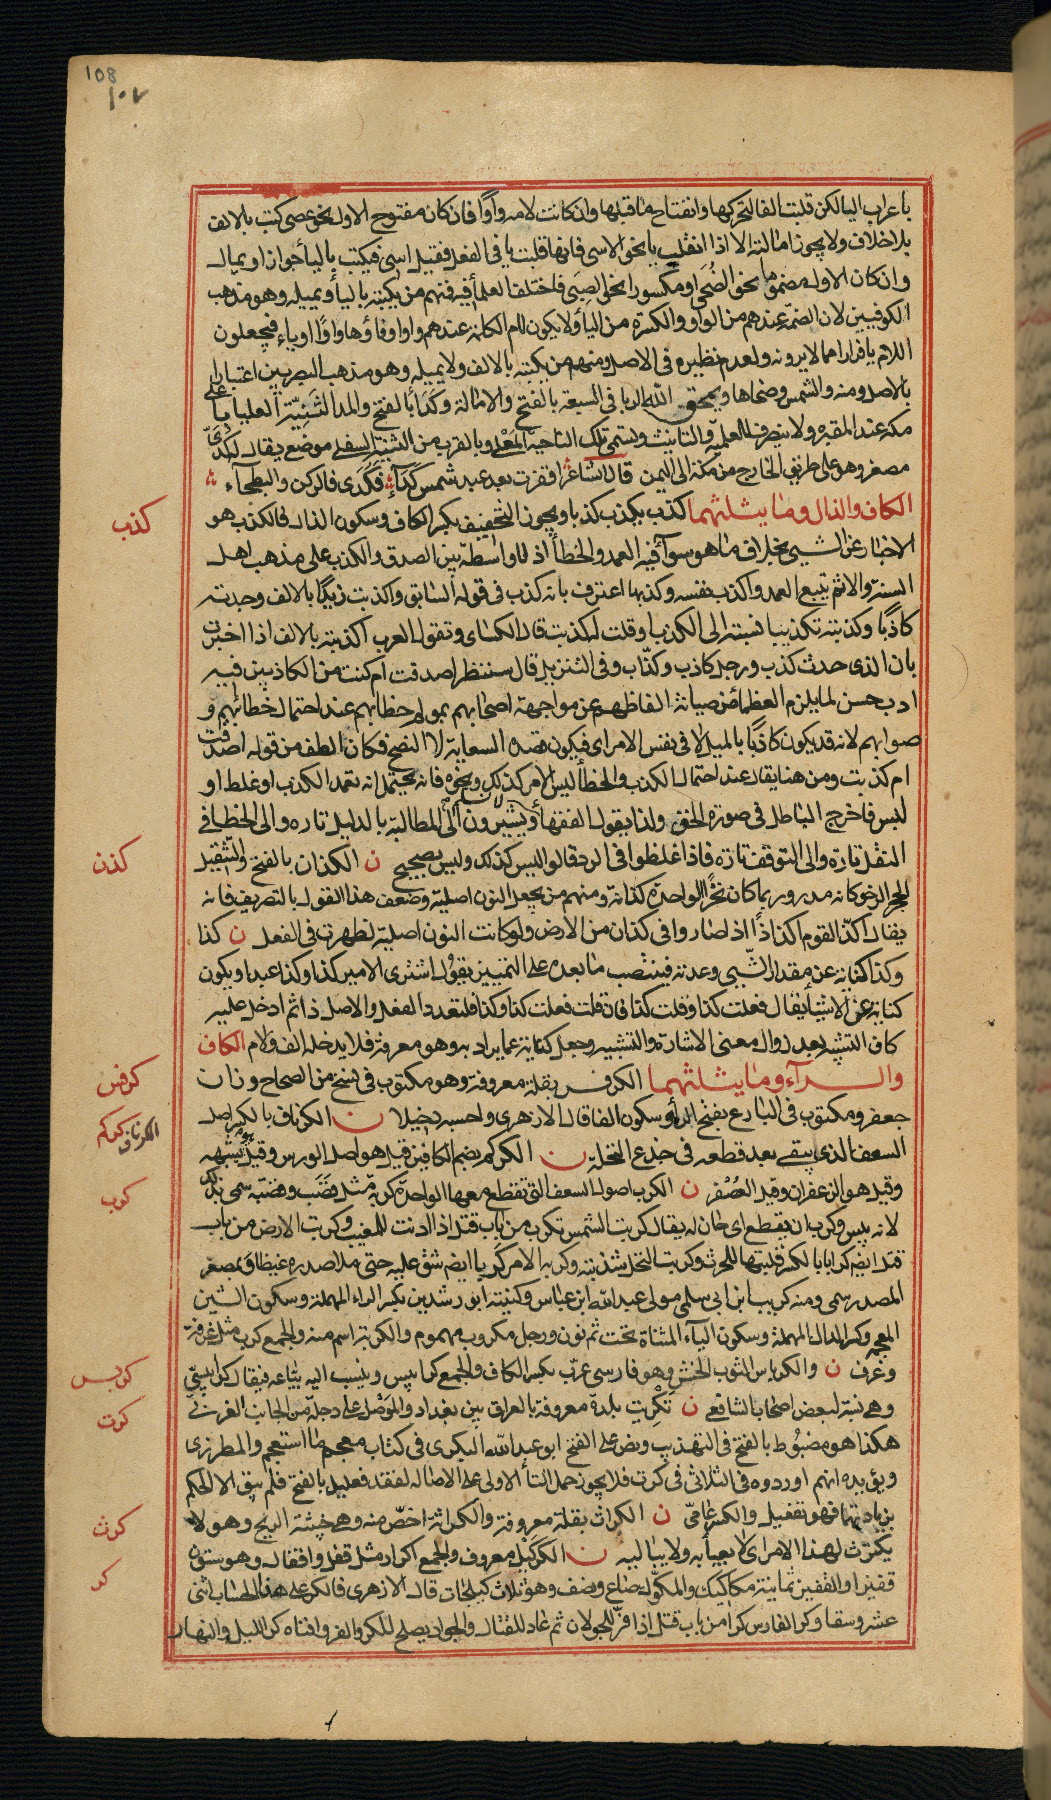 108
١٠٧
باعراب اليا لكن قلبت الفا لتحركها وانفتاح ما قبلها وان كانت لامه واوا فان كان مفتوح الاول نحو عصى كتب بالالف
بلا خلاف ولا يجوز امالته الا اذا انقلب يا نحو الاسى فانها قلبت يا في الفعل فقيل اسى فيكتب باليا جوازا ويمال
وان كان الاول مضموما نحو الضحى او مكسورا نحو الصبى فاختلف العلما فيه فمنهم من يكتبه باليا ويميله وهو مذهب
الكوفيين لان الضمة عندهم من الواو والكسرة من اليا ولا يكون لام الكلمة عندهم واوا وفاؤها واوا او ياء فيجعلون
اللام يا فرارا مما لا يرونه ولعدم نظيره في الاصل ومنهم من يكتبه بالالف ولا يميله وهو مذهب البصريين اعتبارا
بالاصل ومنه والشمس وضحاها ويمحق الله الربا في السبعة بالفتح والامالة وكداء بالفتح والمد الثنية العليا باعلى
مكه عند المقبره ولا ينصرف للعلمية والتانيث وتسمى تلك الناحية المعلى وبالقرب من الثنية السفلى موضع يقال له كدى
مصغر وهو على طريق الخارج من مكة الى اليمن قال الشاعر اقفرت بعد عبد شمس كداء فكدى فالركن والبطحاء
الكاف والذال وما يثلثهما كذب يكذب كذبا ويجوز التخفيف بكسر الكاف وسكون الذال فالكذب هو
كذب
الاخبار عن الشيئ بخلاف ما هو سوآ فيه العمد والخطأ اذ لا واسطة بين الصدق والكذب على مذهب اهل
السنة والاثم يتبع العمد واكذب نفسه وكذبها اعترف بانه كذب في قوله السابق واكذبت زيدا بالالف وجدته
كاذبا وكذبته تكذيبا نسبته الى الكذب او قلت له كذبت قال الكسائي وتقول العرب اكذبته بالالف اذا اخبرت
بان الذي حدث كذب ورجل كاذب وكذاب وفي التنزيل قال سننظر اصدقت ام كنت من الكاذبين فيه
ادب حسن لما يلزم العظماء من صيانة الفاظهم عن مواجهة اصحابهم بمولم خطابهم عند احتمال خطائهم و
صوابهم لانه قد يكون كاذبا بالميل لا في نفس الامر اي فيكون قصده السعاية لا النصح فكان الطف من قوله اصدقت
ام كذبت ومن هنا يقال عند احتمال الكذب والخطأ ليس الامر كذلك ونحوه فانه يحتمل انه تعمد الكذب او غلط او
لبس فاخرج الباطل في صورة الحق ولذا يقول الفقهاء لا نسلم ويشيرون الى المطالبة بالدليل تاره والى الخطا في
النقل تارة والى التوقف تارة فاذا غلظوا في الرد قالوا ليس كذلك وليس بصحيح ن الكذان بالفتح والتثقيل
كذن
الحجر الرخو كانه مدر وربما كان نخرا الواحدة كذانة ومنهم من يجعل النون اصلية وضعف هذا القول بالتصريف فانه
يقال اكذ القوم اكذاذا اذا صاروا في كذان من الارض ولو كانت النون اصلية لظهرت في الفعل ن كذا
وكذا كناية عن مقدار الشيئ وعدته فينتصب ما بعده على التمييز يقول اشترى الامير كذا وكذا عبدا ويكون
كناية عن الاشيا يقال فعلت كذا وقلت كذا فان قلت فعلت كذا وكذا فلتعدد الفعل والاصل ذا ثم ادخل عليه
كاف التشبيه بعد زوال معنى الاشارة والتشبيه وجعل كناية عما يراد به وهو معرفة فلا يدخله الف ولام الكاف
والراء وما يثلثهما الكرفس بقلة معروفة وهو مكتوب في نسخ من الصحاح وزان
كرفس
جعفر ومكتوب في البارع بفتح الراء وسكون الفا قال الازهري واحسبه دخيلا ن الكرناف بالكسر اصل
الكرناف كركم
السعف الذي يبقى بعد قطعه في جذع النخلة ن الكركم بضم الكافين قيل هو اصل الورس وقيل يشبهه
وقيل هو الزعفران وقيل العصفر ن الكرب اصول السعف التي تقطع معها الواحدة كربة مثل قصب وقصبة سمي بذلك
كرب
لانه يبس وكرب ان يقطع اي حان له يقال كربت الشمس تكرب من باب قتل اذا دنت للمغيب وكربت الارض من باب
قتل ايضا كرابا بالكسر قلبتها للحرث وكربت النخل شذبته وكربه الامر كربا ايضا شق عليه حتى ملا صدره غيظا وبمصغر
المصدر سمي ومنه كريب ابن ابي سلمى مولى عبد الله ابن عباس وكنيته ابو رشدين بكسر الراء المهملة وسكون الشين
المعجمه وكسر الدال المهملة وسكون الياء المثناة تحت ثم نون ورجل مكروب مهموم والكربة اسم منه والجمع كرب مثل غرفة
وغرف ن والكرباس الثوب الخشن وهو فارسي عرب بكسر الكاف والجمع كرابيس وينسب اليه بياعه فيقال كرابيسي
كربس
وهي نسبة لبعض اصحاب الشافعي ن تكريت بلدة معروفة بالعراق بين بغداد والموصل على دجلة من الجانب الغربي
كرت
هكذا هو مضبوط بالفتح في التهذيب ونص على الفتح ابو عبد الله البكري في كتاب معجم ما استعجم والمطرزي
ويؤيده انهم اوردوه في الثلاثي في كرت فلا يجوز حمل التاء الاولى على الاصالة لفقد فعليل بالفتح فلم يبق الا الحكم
بزيادتها فهو تفعيل والكسر عامي ن الكراث بقلة معروفة والكراثة اخص منه وهي خبيثة الريح وهو لا
كرث
يكترث لهذا الامر اي لا يعبأ به ولا يباليه ن الكر كيل معروف والجمع اكرار مثل قفل واقفال وهو ستون
كر
قفيزا والقفيز ثمانية مكاكيك والمكوك صاع ونصف وهو ثلاث كيلجات قال الازهري فالكر على هذا الحساب اثنى
عشر وسقا وكر الفارس كرا من باب قتل اذا فر للجولان ثم عاد للقتال والجواد يصلح للكر والفر وافناه كر الليل والنهار